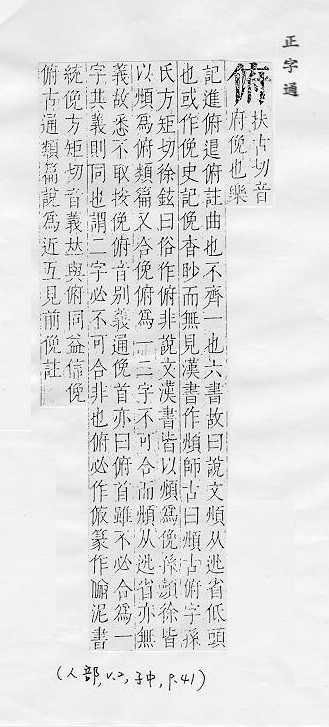 正字通
俯
扶古切音
府俛也樂
記進俯退俯註曲也不齊一也六書故曰說文頫从逃省低頭
也或作俛史記俛杳眇而無見漢書作頫師古曰頫古俯字孫
氏方矩切徐鉉曰俗作俯非說文漢書皆以頫為俛孫顫徐皆
以頫為俯類篇又合俛俯為一二字不可合而頫从逃省亦無
義故悉不取按俛俯音别義通俛首亦曰俯首雖不必合為一
字其義則同也謂二字必不可合非也俯必作俯篆作泥書
統俛方矩切音義𠀤與俯同益信俛
俯古通類篇說為近互見前俛註
(人部, v.2, 子中, p.41)